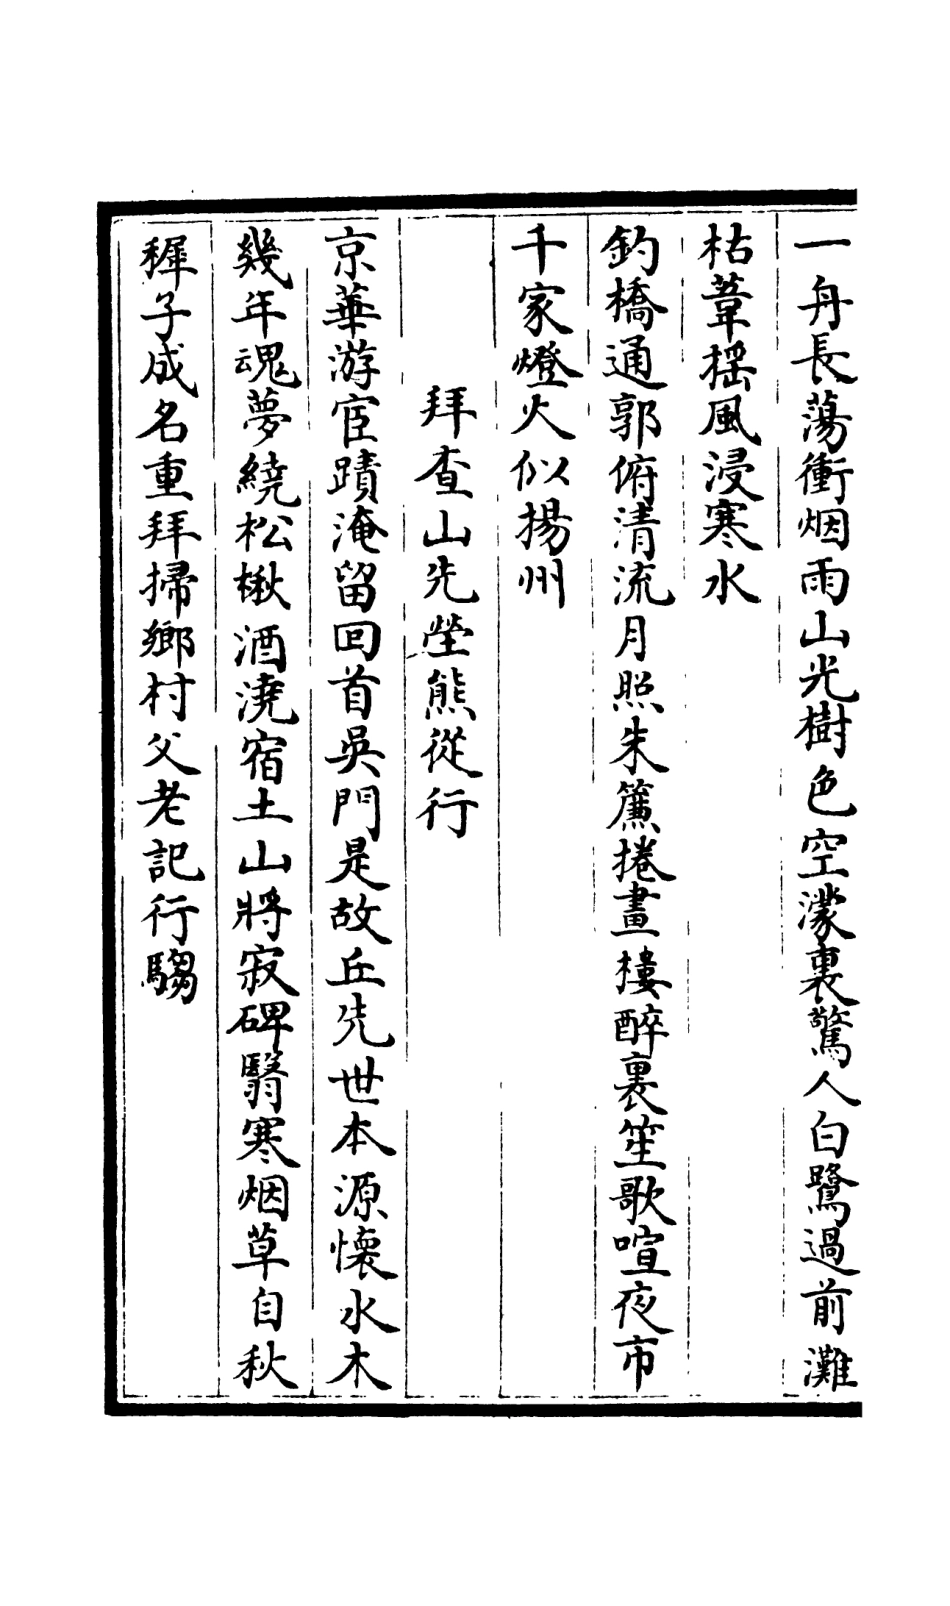 一舟長蕩衝烟雨山光樹色空濛裏驚人白鷺過前灘
枯葦揺風浸寒水
釣橋通郭俯清流月照朱簾捲畫樓醉裏笙歌喧夜市
千家燈火似揚州
拜查山先塋熊從行
京華游宦蹟淹留回首吳門是故丘先世本源懷水木
幾年魂夢繞松楸酒澆宿土山將寂碑翳寒烟草自秋
穉子成名重拜掃鄉村父老記行騶